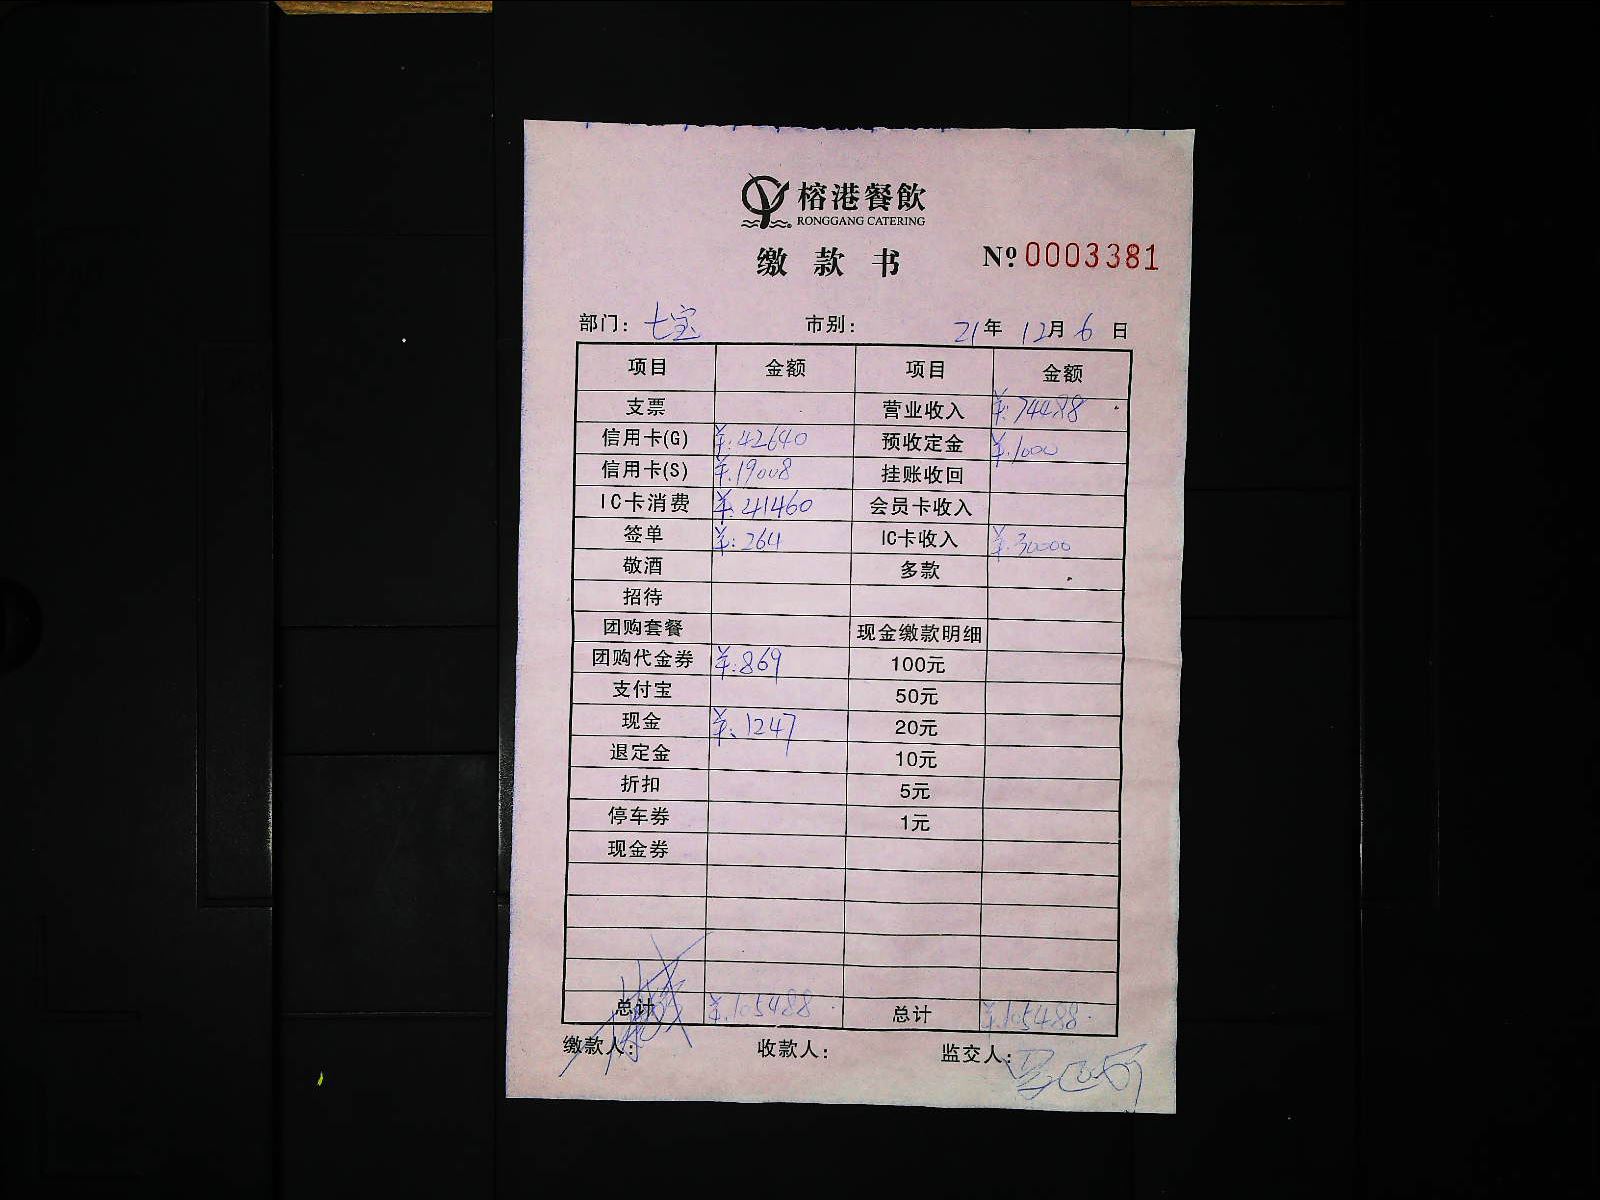 榕港餐飲
RONGGANG CATERING
缴款书 Nº 0003381
部门: 七宝 市别: 21年 12月 6日
项目 金额 项目 金额
支票 营业收入 ¥:74488
信用卡(G) ¥:42640 预收定金 ¥:1000
信用卡(S) ¥:19008 挂账收回
IC卡消费 ¥:41460 会员卡收入
签单 ¥:264 IC卡收入 ¥:30000
敬酒 多款
招待
团购套餐 现金缴款明细
团购代金券 ¥:869 100元
支付宝 50元
现金 ¥:1247 20元
退定金 10元
折扣 5元
停车券 1元
现金券
总计 ¥:105488 总计 ¥:105488
缴款人: 收款人: 监交人: